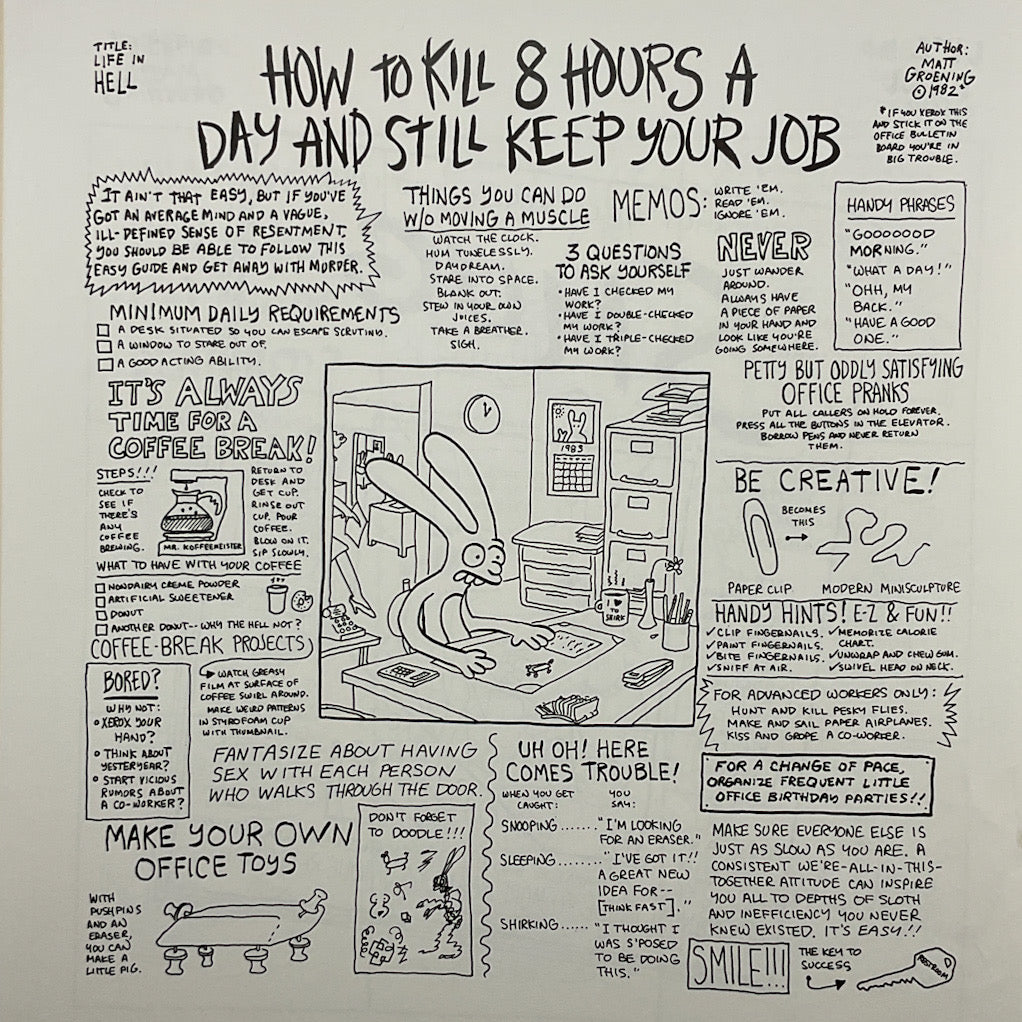 TITLE:
LIFE IN
HELL
HOW TO KILL 8 HOURS A
DAY AND STILL KEEP YOUR JOB
AUTHOR:
MATT
GROENING
© 1982*
*IF YOU XEROX THIS
AND STICK IT ON THE
OFFICE BULLETIN
BOARD YOU'RE IN
BIG TROUBLE.
IT AIN'T THAT EASY, BUT IF YOU'VE
GOT AN AVERAGE MIND AND A VAGUE,
ILL-DEFINED SENSE OF RESENTMENT,
YOU SHOULD BE ABLE TO FOLLOW THIS
EASY GUIDE AND GET AWAY WITH MURDER.
MINIMUM DAILY REQUIREMENTS
A DESK SITUATED SO YOU CAN ESCAPE SCRUTINO.
A WINDOW TO STARE OUT OF.
A GOOD ACTING ABILITY.
IT'S ALWAYS
TIME FOR A
COFFEE BREAK!
STEPS!!!
CHECK TO
SEE IF
THERE'S
ANY
COFFEE
BREWING.
MR. KOFFEEMEISTER
RETURN TO
DESK AND
GET CUP.
RINSE OUT
CUP. POUR
COFFEE.
BLOW ON IT.
SIP SLOWLY.
WHAT TO HAVE WITH YOUR COFFEE
NONDAIRY CREME POWDER
ARTIFICIAL SWEETENER
DONUT
ANOTHER DONUT-- WHY THE HELL NOT?
COFFEE-BREAK PROJECTS
WATCH GREASY
FILM AT SURFACE OF
COFFEE SWIRL AROUND.
MAKE WEIRD PATTERNS
IN STYROFOAM CUP
WITH THUMBNAIL.
BORED?
WHY NOT:
XEROX YOUR
HAND?
THINK ABOUT
YESTERYEAR?
START VICIOUS
RUMORS ABOUT
A CO-WORKER?
THINGS YOU CAN DO
W/O MOVING A MUSCLE
WATCH THE CLOCK.
HUM TUNELESSLY.
DAYDREAM.
STARE INTO SPACE.
BLANK OUT.
STEW IN YOUR OWN
JUICES.
TAKE A BREATHER.
SIGH.
3 QUESTIONS
TO ASK YOURSELF
• HAVE I CHECKED MY
WORK?
• HAVE I DOUBLE-CHECKED
MY WORK?
• HAVE I TRIPLE-CHECKED
MY WORK?
MEMOS:
WRITE 'EM.
READ 'EM.
IGNORE 'EM.
NEVER
JUST WANDER
AROUND.
ALWAYS HAVE
A PIECE OF PAPER
IN YOUR HAND AND
LOOK LIKE YOU'RE
GOING SOMEWHERE.
HANDY PHRASES
"GOOOOOOD
MORNING."
"WHAT A DAY!"
"OHH, MY
BACK."
"HAVE A GOOD
ONE."
PETTY BUT ODDLY SATISFYING
OFFICE PRANKS
PUT ALL CALLERS ON HOLD FOREVER.
PRESS ALL THE BUTTONS IN THE ELEVATOR.
BORROW PENS AND NEVER RETURN
THEM.
1983
I ♥
TO
SHIRK
BE CREATIVE!
BECOMES
THIS
PAPER CLIP
MODERN MINISCULPTURE
HANDY HINTS! E-Z & FUN!!
✓CLIP FINGERNAILS.
✓PAINT FINGERNAILS.
✓BITE FINGERNAILS.
✓SNIFF AT AIR.
✓MEMORIZE CALORIE
CHART.
✓UNWRAP AND CHEW GUM.
✓SWIVEL HEAD ON NECK.
FOR ADVANCED WORKERS ONLY:
HUNT AND KILL PESKY FLIES.
MAKE AND SAIL PAPER AIRPLANES.
KISS AND GROPE A CO-WORKER.
FOR A CHANGE OF PACE,
ORGANIZE FREQUENT LITTLE
OFFICE BIRTHDAY PARTIES!!
FANTASIZE ABOUT HAVING
SEX WITH EACH PERSON
WHO WALKS THROUGH THE DOOR.
MAKE YOUR OWN
OFFICE TOYS
WITH
PUSHPINS
AND AN
ERASER,
YOU CAN
MAKE A
LITTLE PIG.
DON'T FORGET
TO DOODLE!!!
UH OH! HERE
COMES TROUBLE!
WHEN YOU GET
CAUGHT:
YOU
SAY:
SNOOPING......."I'M LOOKING
FOR AN ERASER."
SLEEPING........"I'VE GOT IT!!
A GREAT NEW
IDEA FOR--
[THINK FAST]."
SHIRKING......"I THOUGHT I
WAS S'POSED
TO BE DOING
THIS."
MAKE SURE EVERYONE ELSE IS
JUST AS SLOW AS YOU ARE. A
CONSISTENT WE'RE-ALL-IN-THIS-
TOGETHER ATTITUDE CAN INSPIRE
YOU ALL TO DEPTHS OF SLOTH
AND INEFFICIENCY YOU NEVER
KNEW EXISTED. IT'S EASY!!
SMILE!!!
THE KEY TO
SUCCESS
RESTROOM